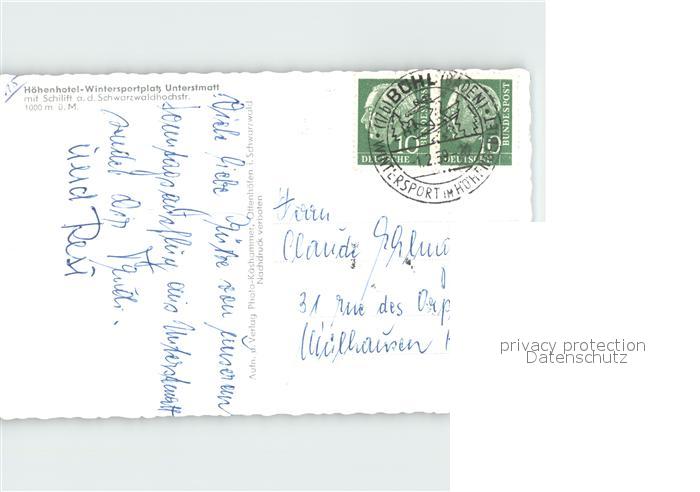 Höhenhotel-Wintersportplatz Unterstmatt
mit Schilift a. d. Schwarzwaldhochstr.
1000 m ü. M.
Viele liebe Grüße von unserem
Sonntagsausflug aus Unterstmatt
sendet Dir
und Resi
Aufn. u. Verlag Photo-Käshammer, Ottenhöfen i. Schwarzwald
Nachdruck verboten
10 10
DEUTSCHE DEUTSCHE BUNDESPOST
(17b) BÜHL (BADEN)
WINTERSPORT IM HÖHEN
Herrn
Claude
31 rue des
Mülhausen
privacy protection
Datenschutz